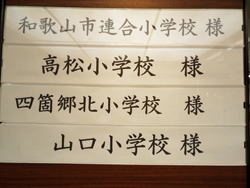 和歌山市連合小学校 様
高松小学校 様
四箇郷北小学校 様
山口小学校 様